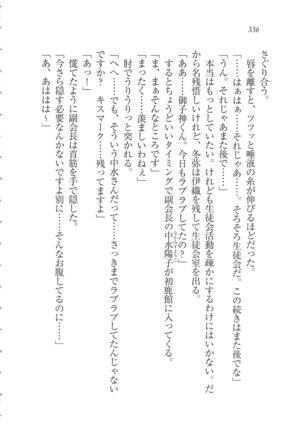 336
さぐり合う。
唇を離すと、ツツッと唾液の糸が伸びるほどだった。
「……はぁはぁ……それじゃあ……そろそろ生徒会だ。この続きはまた後でな」
「うん。それじゃあまた後で……」
本当はもっとしていたい。けれども生徒会活動を疎かにするわけにはいかない。だ
から名残惜しいけれど、冬弥は伊織を連れて生徒会室を出る。
「ああ……御子神くん。今日もラブラブしてたの?」
するとちょうどいいタイミングで副会長の中水陽子が初鹿館に入ってくる。
「ま、まぁそんなところです」
「まったく……羨ましいわねぇ」
肘でうりうりっと突かれる。
「へへ……でも、そういう中水さんだって……さっきまでラブラブしてたんじゃない
ですか? キスマーク……残ってますよ」
「あっ!」
慌てたように副会長は首筋を手で隠した。
「今さら隠す必要なんかないですよ別に……そんなお腹してるのに……」
「あ、あははは～」